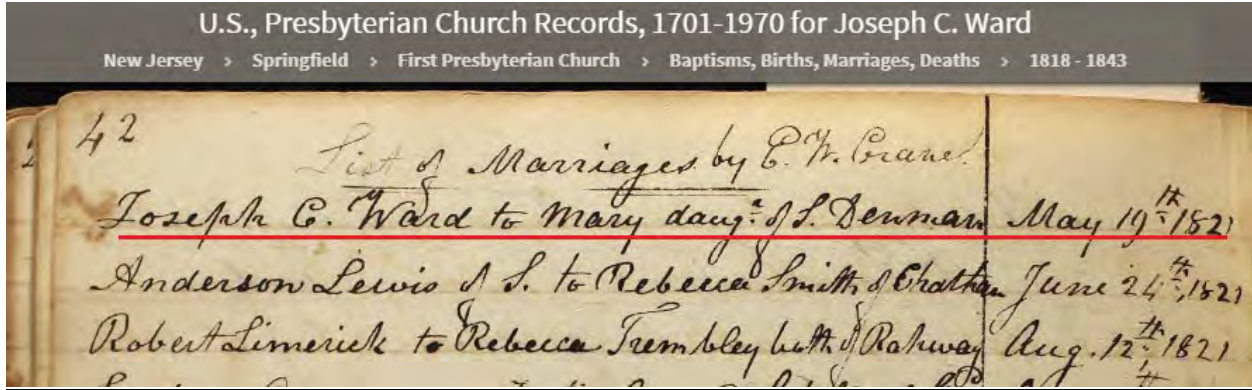 U.S., Presbyterian Church Records, 1701-1970 for Joseph C. Ward
New Jersey > Springfield > First Presbyterian Church > Baptisms, Births, Marriages, Deaths > 1818 - 1843
42
List of Marriages by E. W. Crane.
Joseph C. Ward to Mary daugr. of S. Denman May 19th 1821
Anderson Lewis of S. to Rebecca Smith of Chatham June 24th, 1821
Robert Limerick to Rebecca Trembley both of Rahway Aug. 12th, 1821